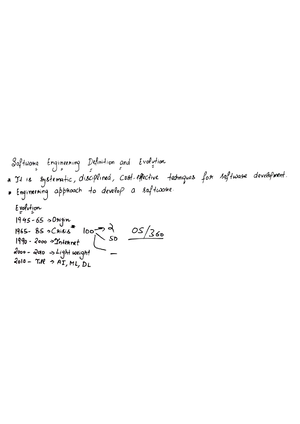 Software Engineering Definition and Evolution
* It is systematic, disciplined, cost-effective techniques for software development.
* Engineering approach to develop a software
Evolution
1945-65 → Origin
1965-85 → Crisis * 100 → 2 OS/360
1990-2000 → Internet 50
2000-2010 → Light weight –
2010- Till → AI, ML, DL